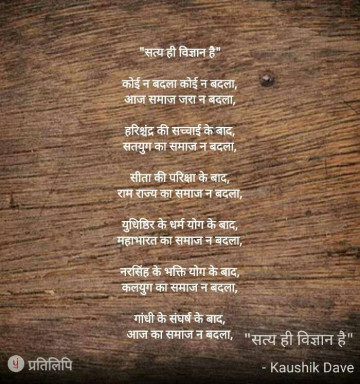 "सत्य ही विज्ञान है"
कोई न बदला कोई न बदला,
आज समाज जरा न बदला,
हरिश्चंद्र की सच्चाई के बाद,
सतयुग का समाज न बदला,
सीता की परिक्षा के बाद,
राम राज्य का समाज न बदला,
युधिष्ठिर के धर्म योग के बाद,
महाभारत का समाज न बदला,
नरसिंह के भक्ति योग के बाद,
कलयुग का समाज न बदला,
गांधी के संघर्ष के बाद,
आज का समाज न बदला,
"सत्य ही विज्ञान है"
- Kaushik Dave
प्रतिलिपि